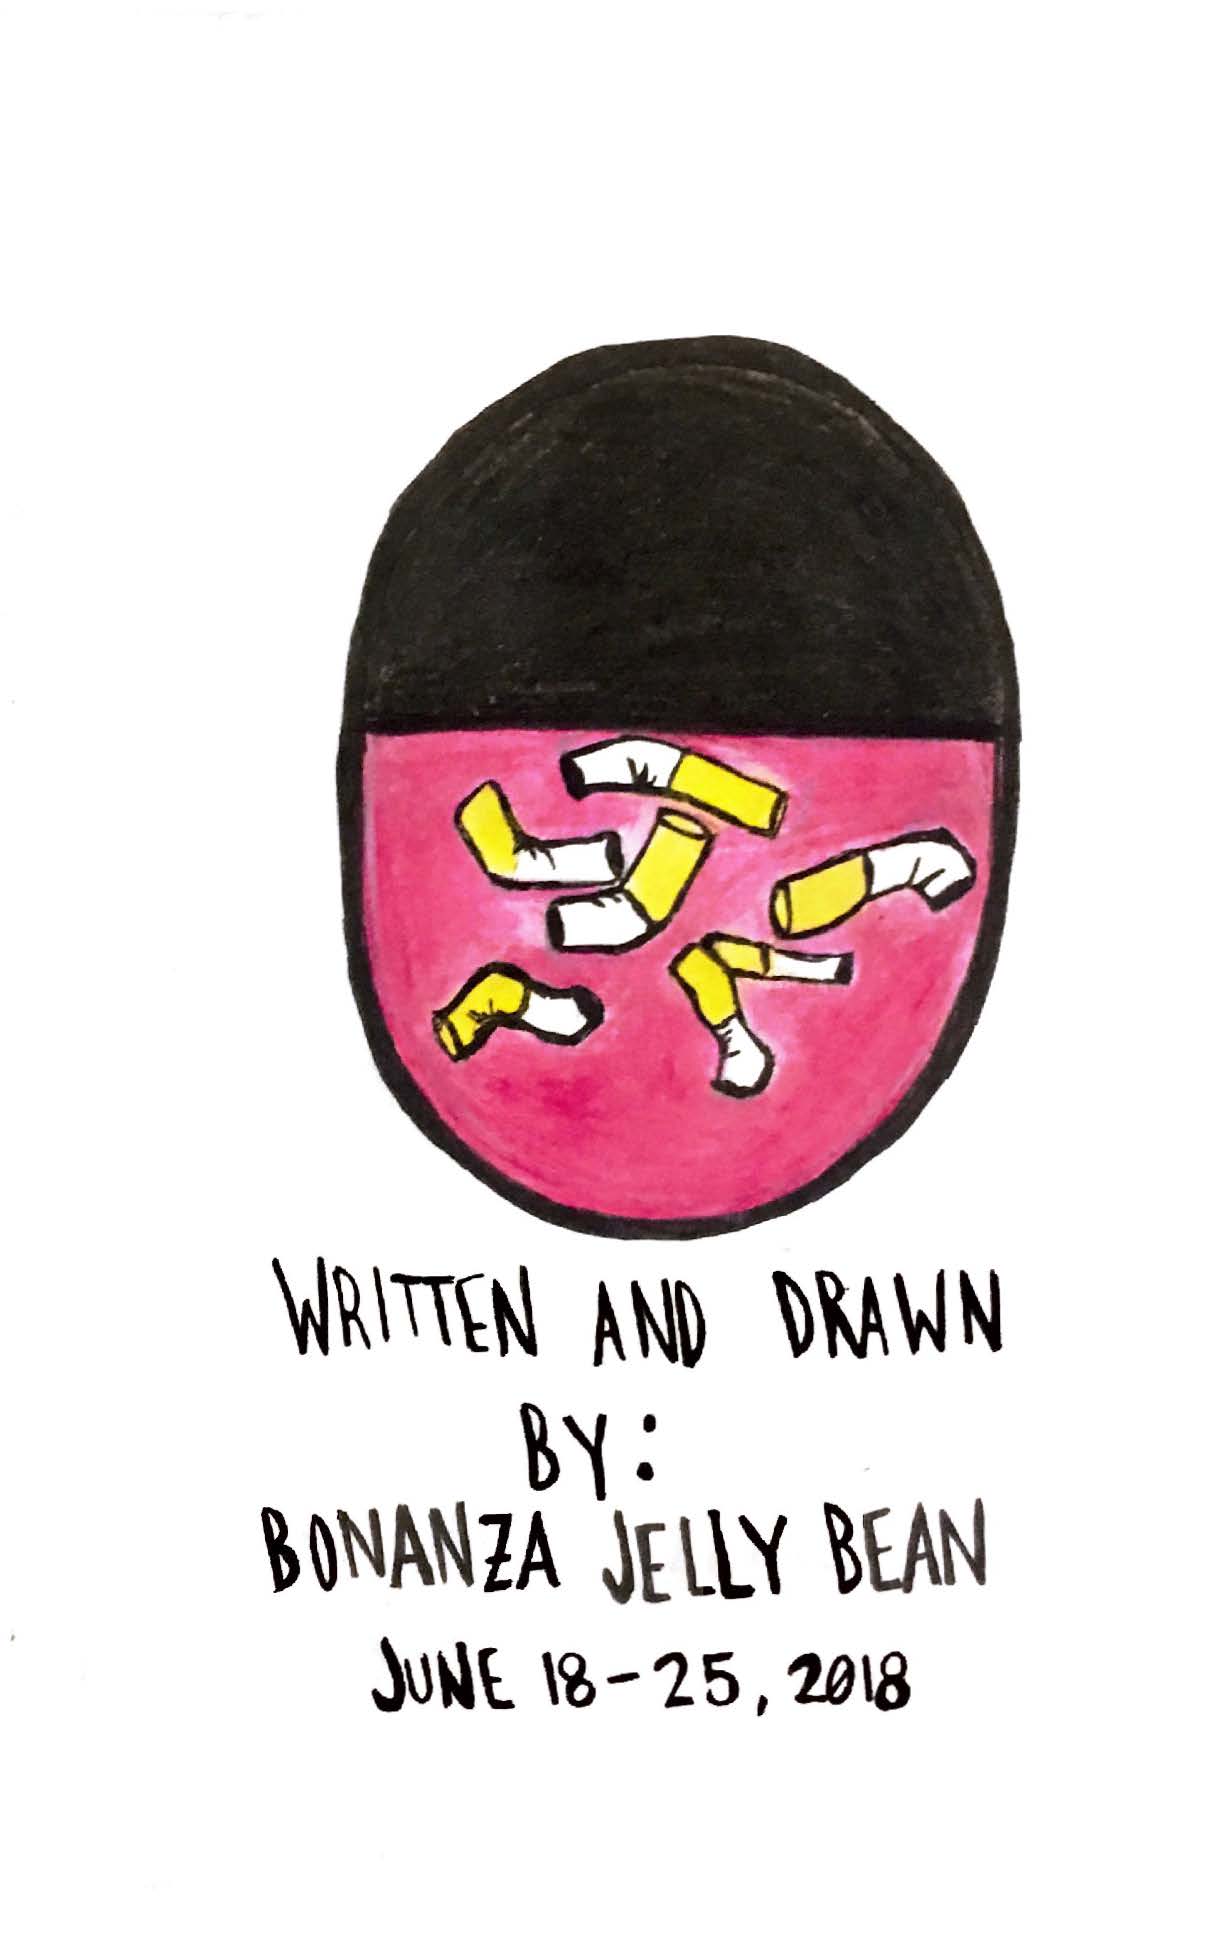 WRITTEN AND DRAWN
BY:
BONANZA JELLY BEAN
JUNE 18-25, 2018